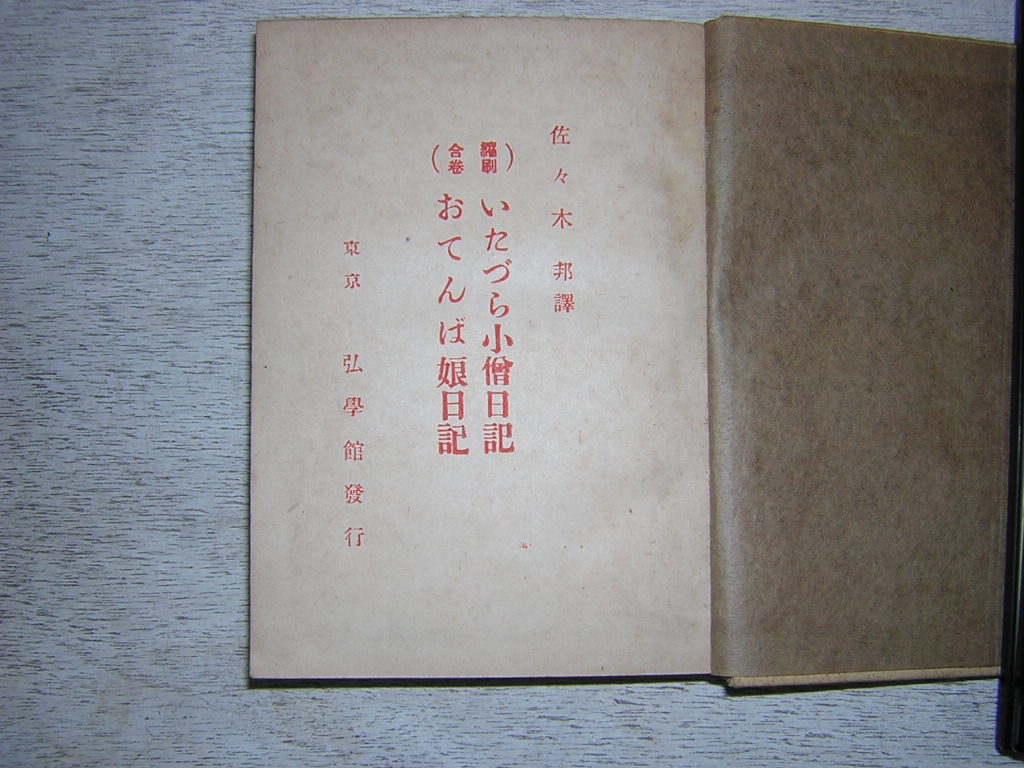 佐々木邦譯
(縮刷合卷)
いたづら小僧日記
おてんば娘日記
東京 弘學館發行